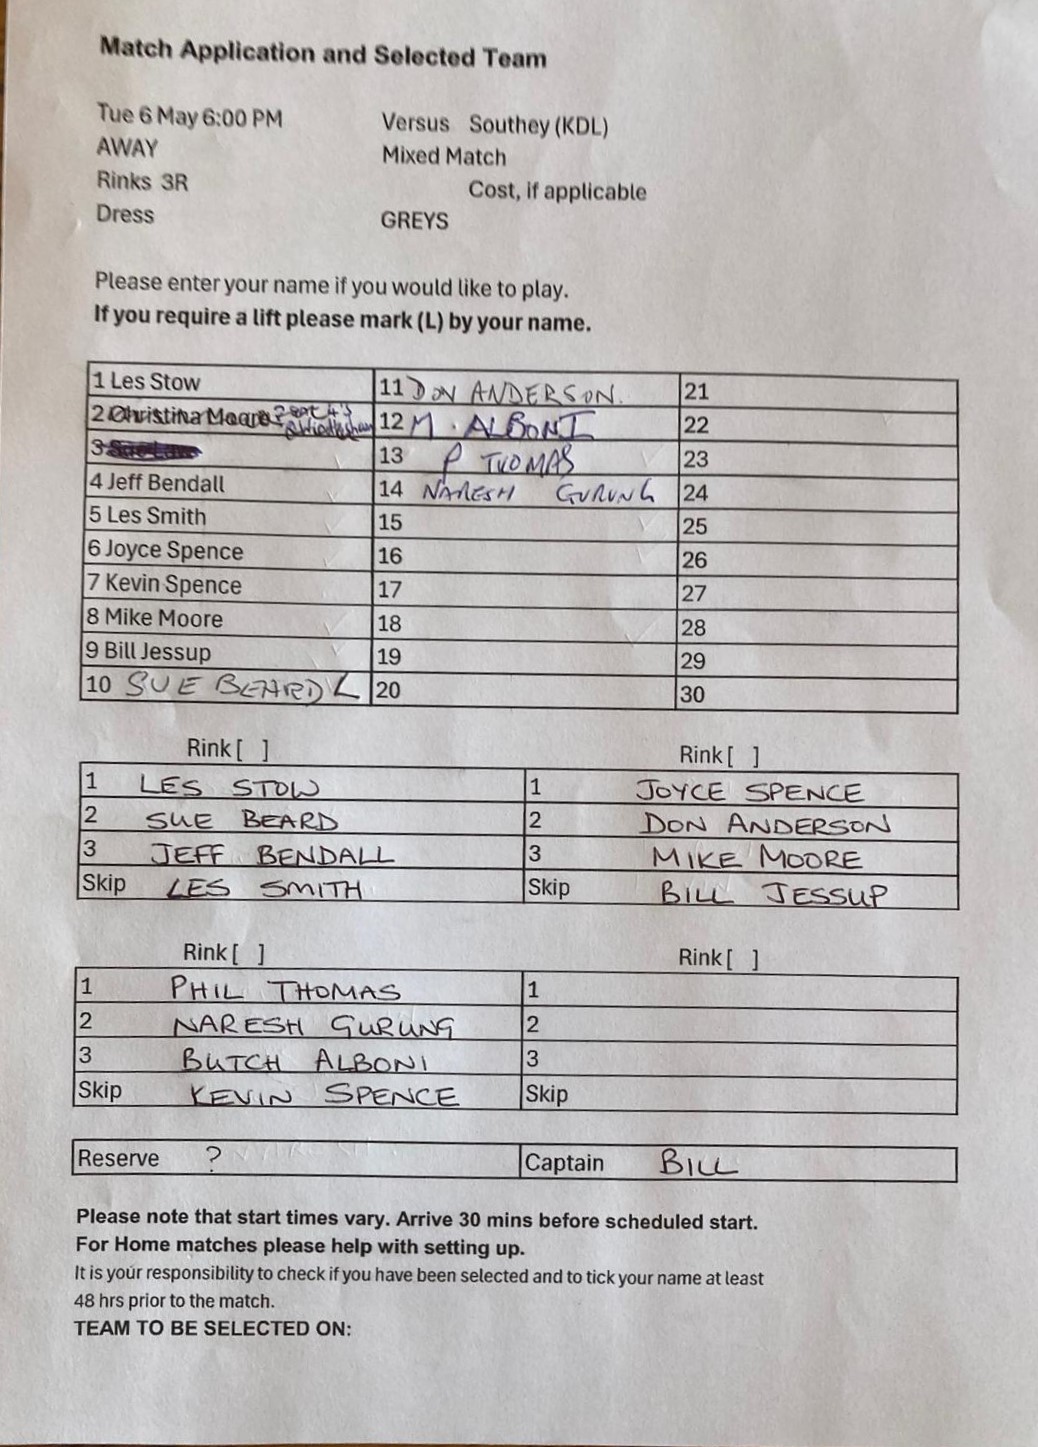 Match Application and Selected Team
Tue 6 May 6:00 PM Versus Southey (KDL)
AWAY Mixed Match
Rinks 3R Cost, if applicable
Dress GREYS
Please enter your name if you would like to play.
If you require a lift please mark (L) by your name.
1 Les Stow 11 DON ANDERSON. 21
2 Christina Moore 12 M. ALBONI 22
3 13 P THOMAS 23
4 Jeff Bendall 14 NARESH GURUNG 24
5 Les Smith 15 25
6 Joyce Spence 16 26
7 Kevin Spence 17 27
8 Mike Moore 18 28
9 Bill Jessup 19 29
10 SUE BEARD L 20 30
Rink [ ] Rink [ ]
1 LES STOW 1 JOYCE SPENCE
2 SUE BEARD 2 DON ANDERSON
3 JEFF BENDALL 3 MIKE MOORE
Skip LES SMITH Skip BILL JESSUP
Rink [ ] Rink [ ]
1 PHIL THOMAS 1
2 NARESH GURUNG 2
3 BUTCH ALBONI 3
Skip KEVIN SPENCE Skip
Reserve ? Captain BILL
Please note that start times vary. Arrive 30 mins before scheduled start.
For Home matches please help with setting up.
It is your responsibility to check if you have been selected and to tick your name at least
48 hrs prior to the match.
TEAM TO BE SELECTED ON: